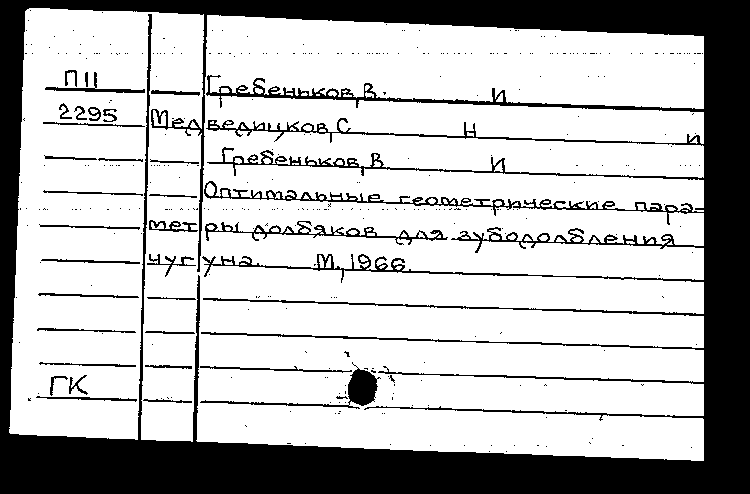 П11 Гребеньков, В. И
2295 Медведицков, С Н и
Гребеньков, В И
Оптимальные геометрические пара-
метры долбяков для зубодолбления
чугуна. М., 1966.
ГК